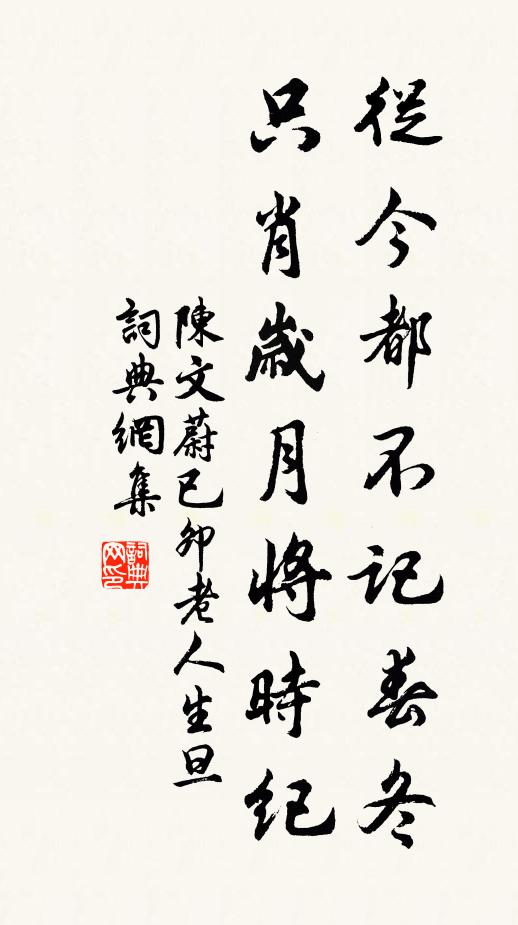 從今都不記春冬
只肖歲月將時紀
陳文蔚已卯老人生旦
詞典網集
詞典网印